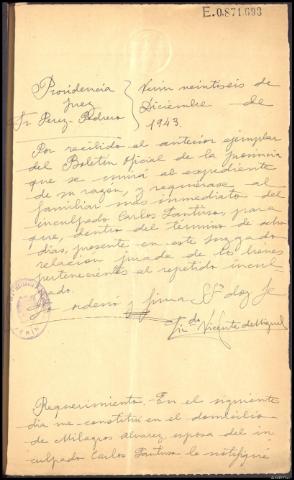 E.0.871.693
Providencia
Juez
Sr. Perez-Pedrero
Verin veintiseis de
Diciembre de
1943
Por recibido el anterior ejemplar
del Boletin Oficial de la provincia
que se unirá al expediente
de su razon, y requierase al
familiar mas inmediato del
inculpado Carlos para
que, dentro del termino de ocho
dias, presente en este Juzgado
relacion jurada de los bienes
pertenecientes al repetido incul
pado.
Lo ordenó y firma Sª doy fe
Vicente de Miguel
Requerimiento. En el siguiente
dia me constitui en el domicilio
de Milagros Alvarez, esposa del in
culpado Carlos le notifiqué